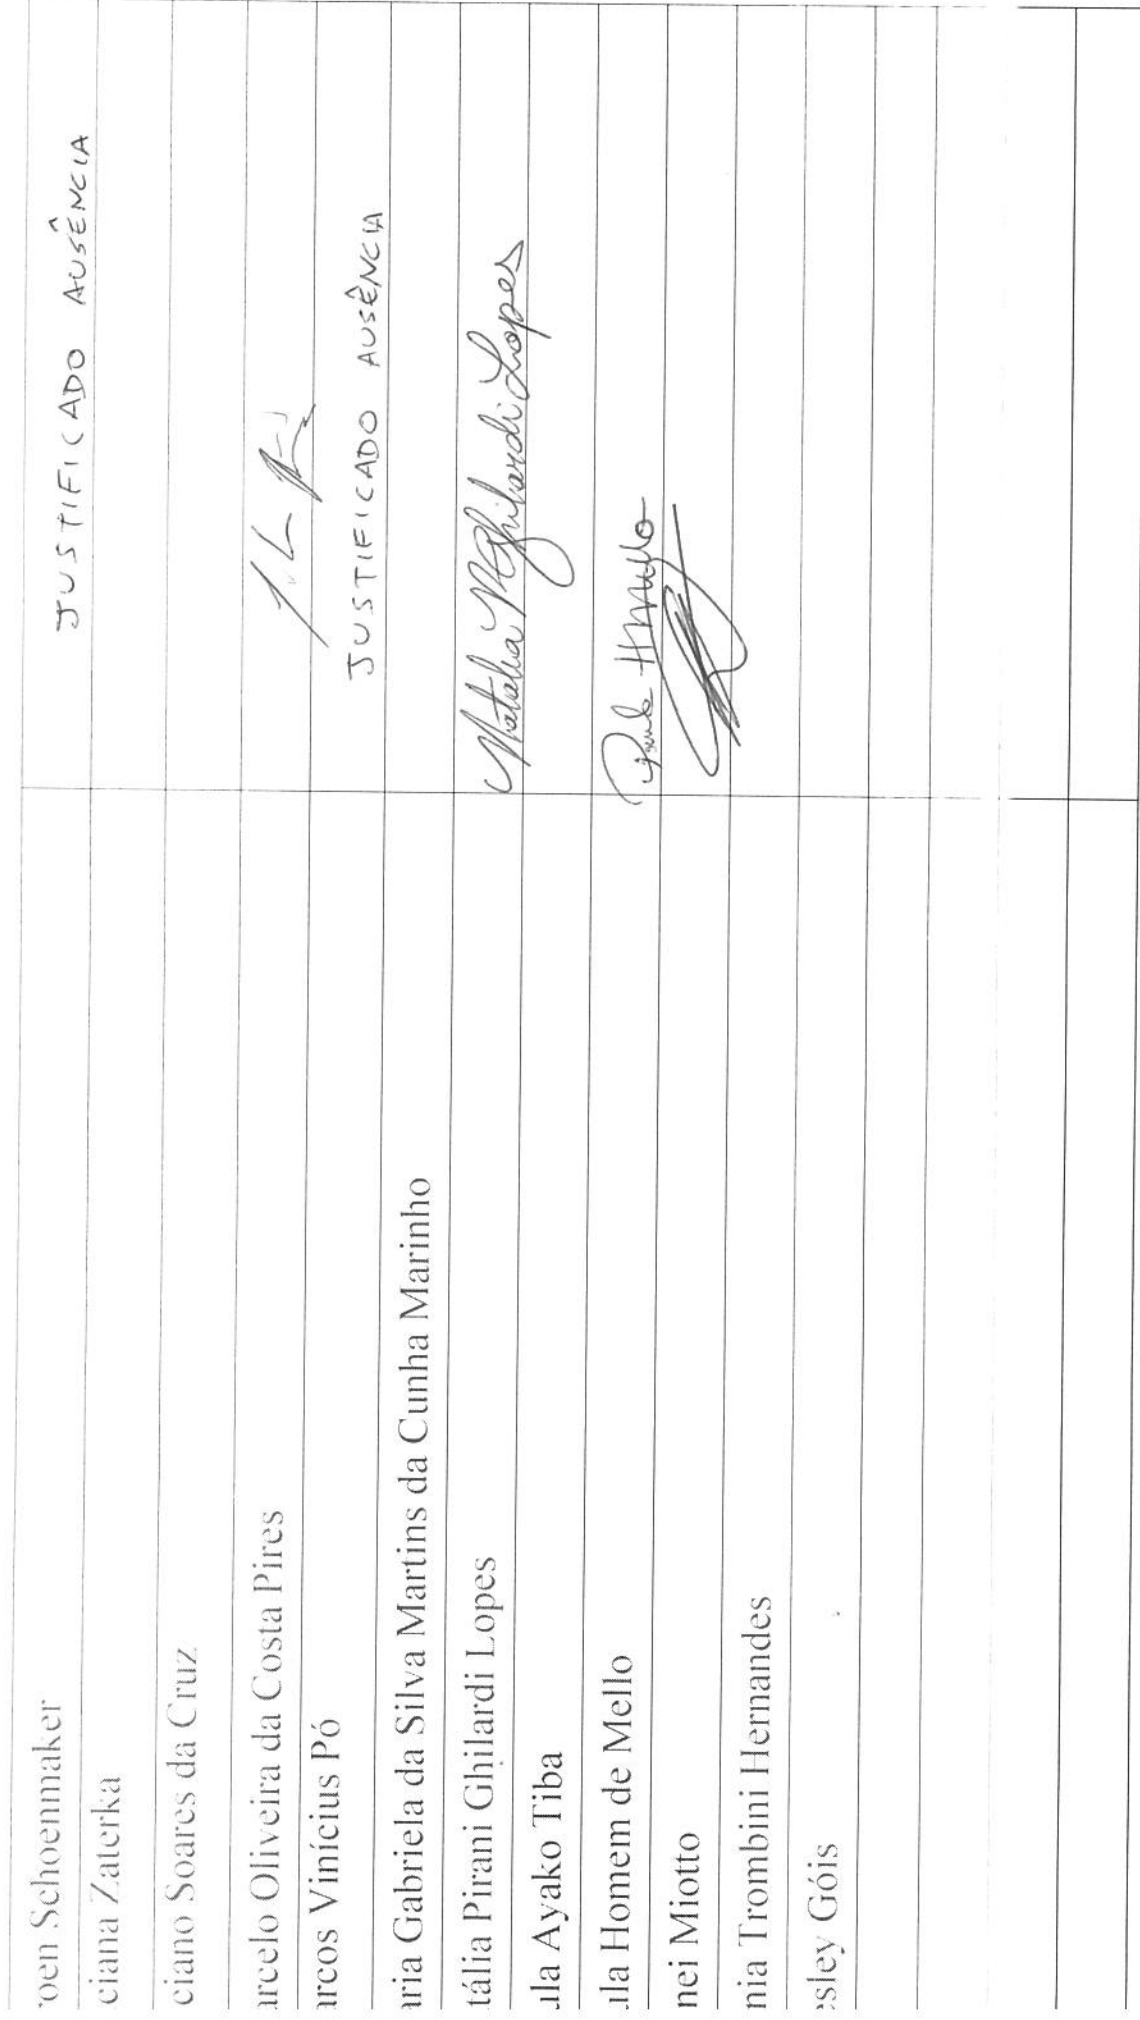 roen Schoenmaker JUSTIFICADO AUSÊNCIA
ciana Zaterka
ciano Soares da Cruz
arcelo Oliveira da Costa Pires
arcos Vinícius Pó JUSTIFICADO AUSÊNCIA
aria Gabriela da Silva Martins da Cunha Marinho
tália Pirani Ghilardi Lopes Natalia P Ghilardi Lopes
ula Ayako Tiba
ula Homem de Mello Paula HMello
nei Miotto
nia Trombini Hernandes
esley Góis